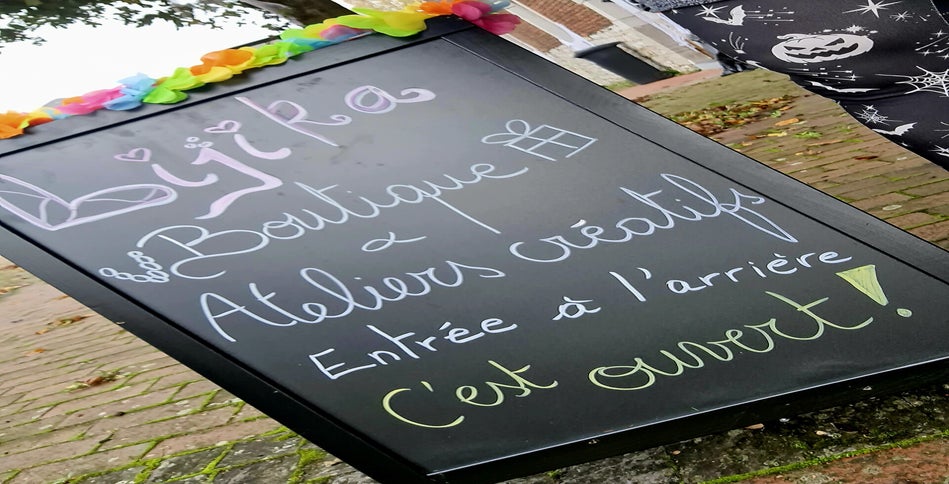 bijika
Boutique
&
Ateliers créatifs
Entrée à l'arrière
C'est ouvert!